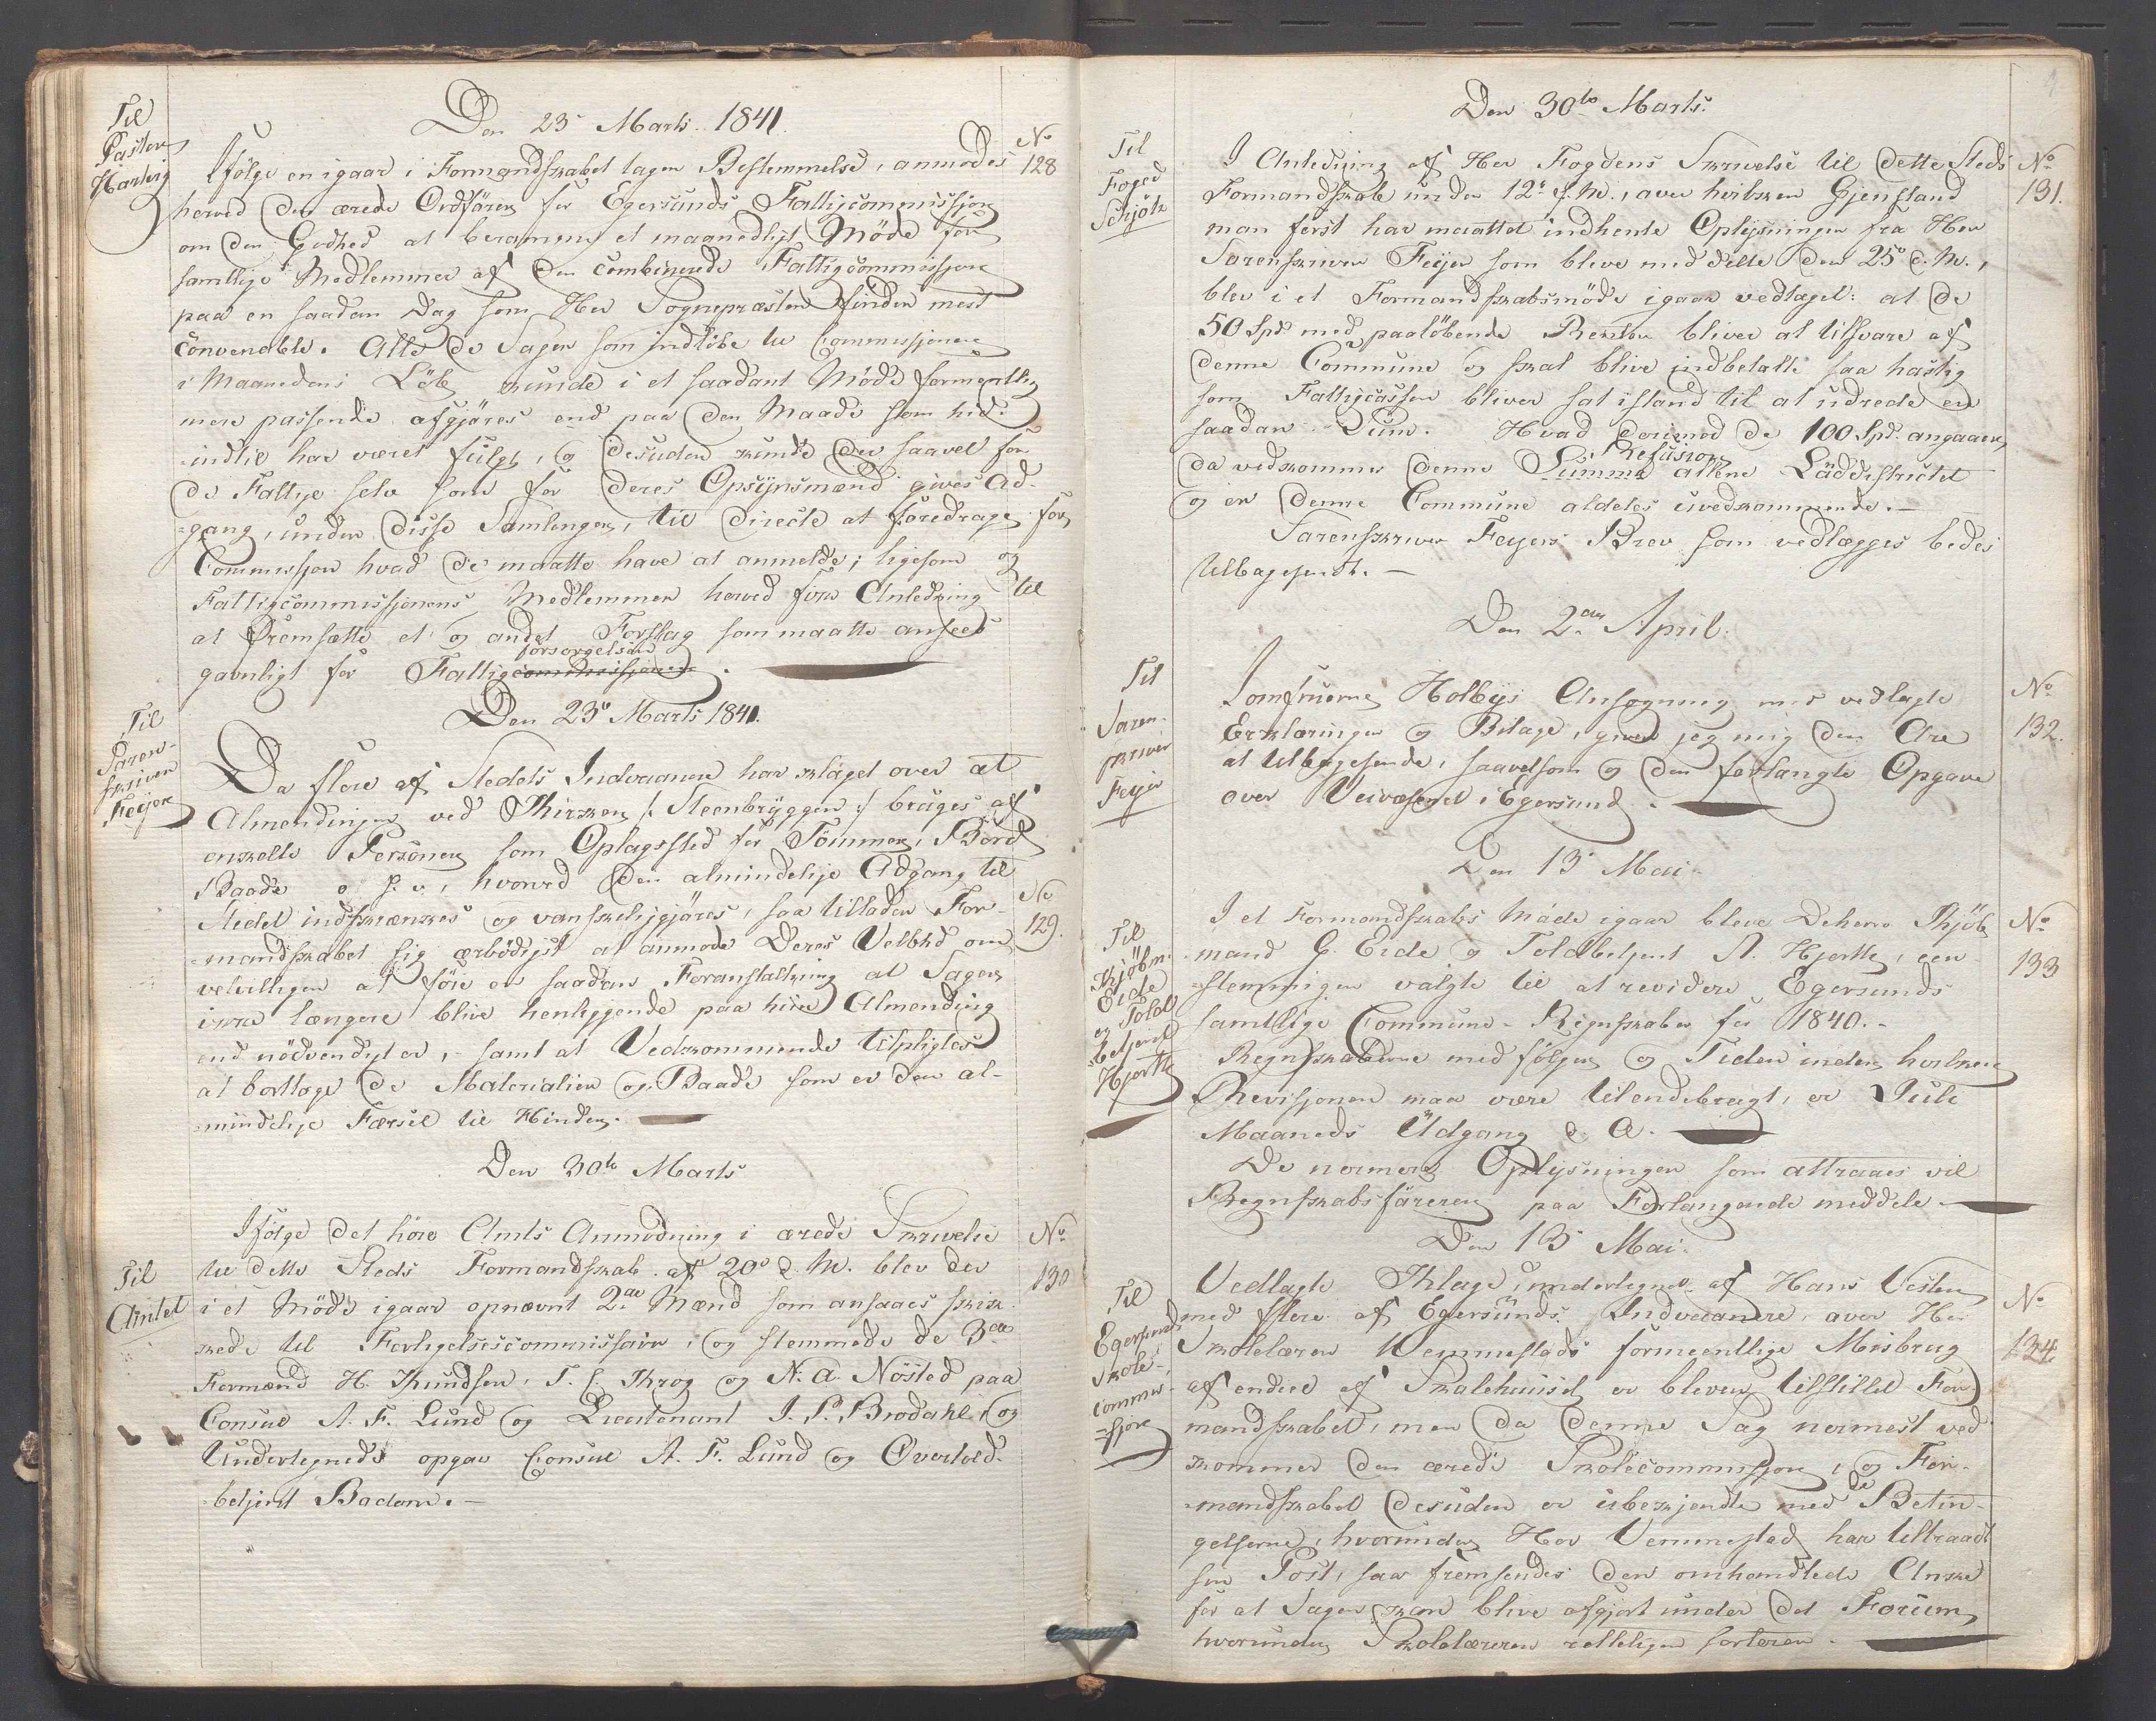 Den 23de Marts 1841.
Til
Pastor
Hartvig
No
128
Ifölge en igaar i Formandskabet tagen Bestemmelse, anmodes
herved den ærede Ordförer for Egersunds Fattigcommissjon
om den Godhed at beramme et maanedligt Möde for
samtlige Medlemmer af den combinerede Fattigcommissjon
paa en saadan Dag som Her Sognepræsten finder mest
convenable. Alle de Sager som indlöbe til Commissjonen
i Maanedens Löb kunde i et saadant Möde formentlig
mere passende afgjöres end paa den Maade som hid-
indtil har været fulgt, og desuden kunde der saavel for
de Fattige selv som for deres Opsynsmænd gives Ad-
gang, under disse Samlinger, til directe at foredrage for
Commissjon hvad de maatte have at anmelde; ligesom og
Fattigcommissjonens Medlemmer herved fik Anledning til
at fremsætte et og andet Forslag som maatte ansees
forsorgelsen
gavnligt for Fattigcommissjonen.
Den 23de Marts 1841.
Til
Soren-
skriver
Feÿer
Da flere af Stedets Indvaanere har klaget over at
Almendingen ved Kirken /: Steenbryggen :/ bruges af
enkelte Personer som Oplagssted for Tömmer, Bord
Baade o. s. v., hvorved den almindelige Adgang til
No
129.
Stedet indskrænkes og vanskeliggjöres, saa tillader For-
mandskabet sig ærbödigst at anmode Deres Velbhd om
velvilligen at föie en saadan Foranstaltning at Sager
ikke længere blive henliggende paa hiin Almending
end nödvendigt er, samt at Vedkommende tilpligtes
at borttage de Materialier og Baade som er den al-
mindelige Færsel til Hinder.
Den 30te Marts
Til
Amtet
No
130
Ifölge det höie Amts Anmodning i ærede Skrivelse
til dette Steds Formandskab af 20de d. M. blev der
i et Möde igaar opnævnt 2de Mænd som ansaaes skik-
kede til Forligelsescommissair, og stemmede de 3de
Formænd H. Knudsen, T. C. Krog og N. A. Nösted paa
Consul A. F. Lund og Lieutenant J. P. Brodahl, og
Undertegnede opgav Consul A. F. Lund og Overtold-
betjent Badom.
Den 30te Marts.
Til
Foged
Schjötz
No
131.
I Anledning af Her Fogdens Skrivelse til dette Steds
Formandskab under 12te f. M., over hvilken Gjenstand
man först har maattet indhente Oplysninger fra Her
Sorenskriver Feÿer som bleve meddelte den 25de d. M.,
blev i et Formandskabsmöde igaar vedtaget: at de
50 Spd med paalöbende Renter bliver at tilsvare af
denne Commune og skal blive indbetalte saa hastig
som Fattigcassen bliver sat istand til at udrede en
saadan Sum. Hvad derimod de 100 Spd angaaer,
Refusion
da vedkommer denne Summa allene Laddistrictet
og er denne Commune aldeles uvedkommende.
Sorenskriver Feyers Brev som vedlægges bedes
tilbagesendt.
Den 2den April.
Til
Soren-
skriver
Feÿer
No
132.
Jomfruerne Holbÿs Ansögning med vedlagte
Erklæringer og Bilage, giver jeg mig den Ære
at tilbagesende, saavelsom og den forlangte Opgave
over Veivæsenet i Egersund.
Den 13de Mai.
Til
Kjöbm.
Eide
og Told
betjent
Hjorth
No
133
I et Formandskabs Möde igaar bleve Deherr Kjöb-
mand G. Eide og Toldbetjent A. Hjorth, een-
stemmigen valgte til at revidere Egersunds
samtlige Commune-Regnskaber for 1840.
Regnskaberne medfölger og Tiden inden hvilken
Revisjonen maa være tilendebragt, er Juli
Maaneds Udgang d. A.
De nærmere Oplysninger som attraaes vil
Regnskabsföreren paa Forlangende meddele.
Den 13de Mai.
Til
Egersunds
Skole-
commis-
sjon
No
134.
Vedlagte Klage, undertegnet af Hans Vesten
med flere af Egersunds Indvaanere, over Her
Skolelærer Vemmestads formeentlige Misbrug
af endeel af Skolehuuset er bleven tilstillet For-
mandskabet, men da denne Sag nærmest ved-
kommer den ærede Skolecommissjon, og For-
de
mandskabet desuden er ubekjendte med Betin-
gelserne, hvorunder Her Vemmestad har tiltraadt
sin Post, saa fremsendes den omhandlede Anke
for at Sagen kan blive afgjort under det Forum
hvorunder Skolelæreren retteligen sorterer.